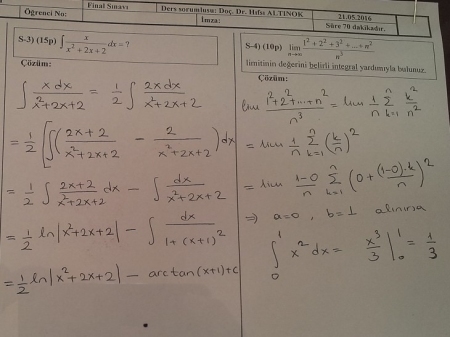 Öğrenci No:
Final Sınavı
Ders sorumlusu: Doç. Dr. Hıfsı ALTINOK
21.05.2016
İmza:
Süre 70 dakikadır.
S-3) (15p) ∫ x/(x²+2x+2) dx = ?
Çözüm:
∫ x dx/(x²+2x+2) = 1/2 ∫ 2x dx/(x²+2x+2)
= 1/2 [∫( (2x+2)/(x²+2x+2) − 2/(x²+2x+2) ) dx
= 1/2 ∫ (2x+2)/(x²+2x+2) dx − ∫ dx/(x²+2x+2)
= 1/2 ln|x²+2x+2| − ∫ dx/(1+(x+1)²)
= 1/2 ln|x²+2x+2| − arctan(x+1)+c
S-4) (10p) lim n→∞ (1²+2²+3²+...+n²)/n³
limitinin değerini belirli integral yardımıyla bulunuz.
Çözüm:
lim (1²+2²+...+n²)/n³ = lim 1/n Σ k=1 n k²/n²
= lim 1/n Σ k=1 n (k/n)²
= lim (1-0)/n Σ k=1 n (0+ (1-0).k/n)²
⇒ a=0, b=1 alınırsa
∫ 0 1 x² dx = x³/3 | 0 1 = 1/3